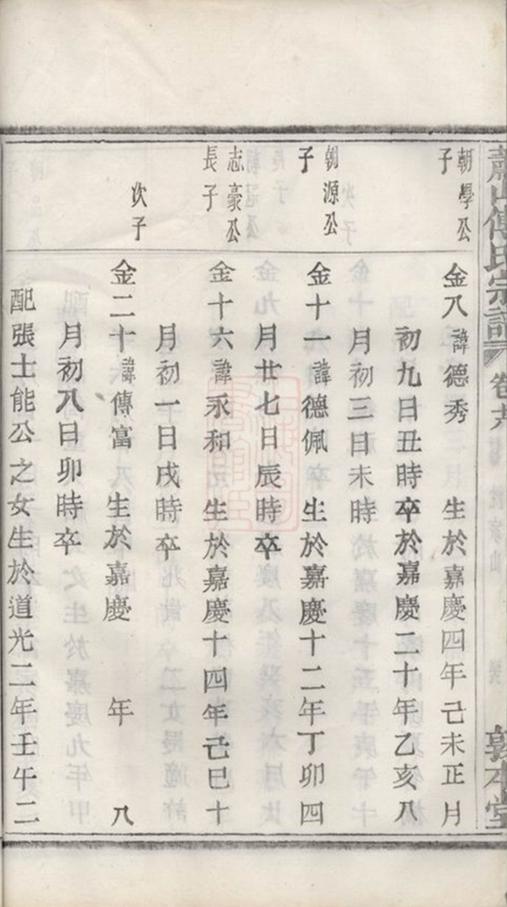 蕭山傅氏宗譜
卷六
敦本堂
朝學公
子
金八 諱德秀 生於嘉慶四年己未正月
初九日丑時卒於嘉慶二十年乙亥八
月初三日未時
朝源公
子
金十一 諱德佩 生於嘉慶十二年丁卯四
月廿七日辰時卒
志豪公
長子
金十六 諱永和 生於嘉慶十四年己巳十
月初一日戌時卒
次子
金二十 諱傳富 生於嘉慶 年 八
月初八日卯時卒
配張士能公之女生於道光二年壬午二